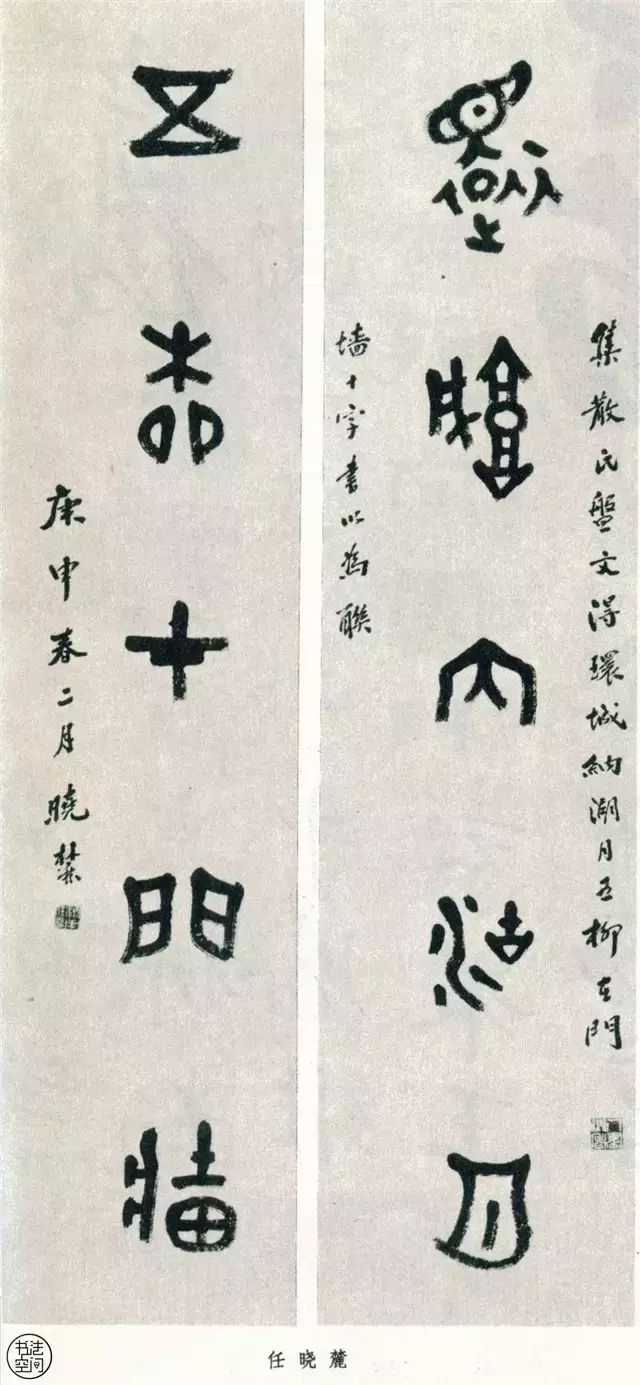 環城納湖月
集散氏盤文得環城納湖月五柳在門
墻十字書以為聯
五柳才門牆
庚申春二月曉麓
任晓麓
书法空间